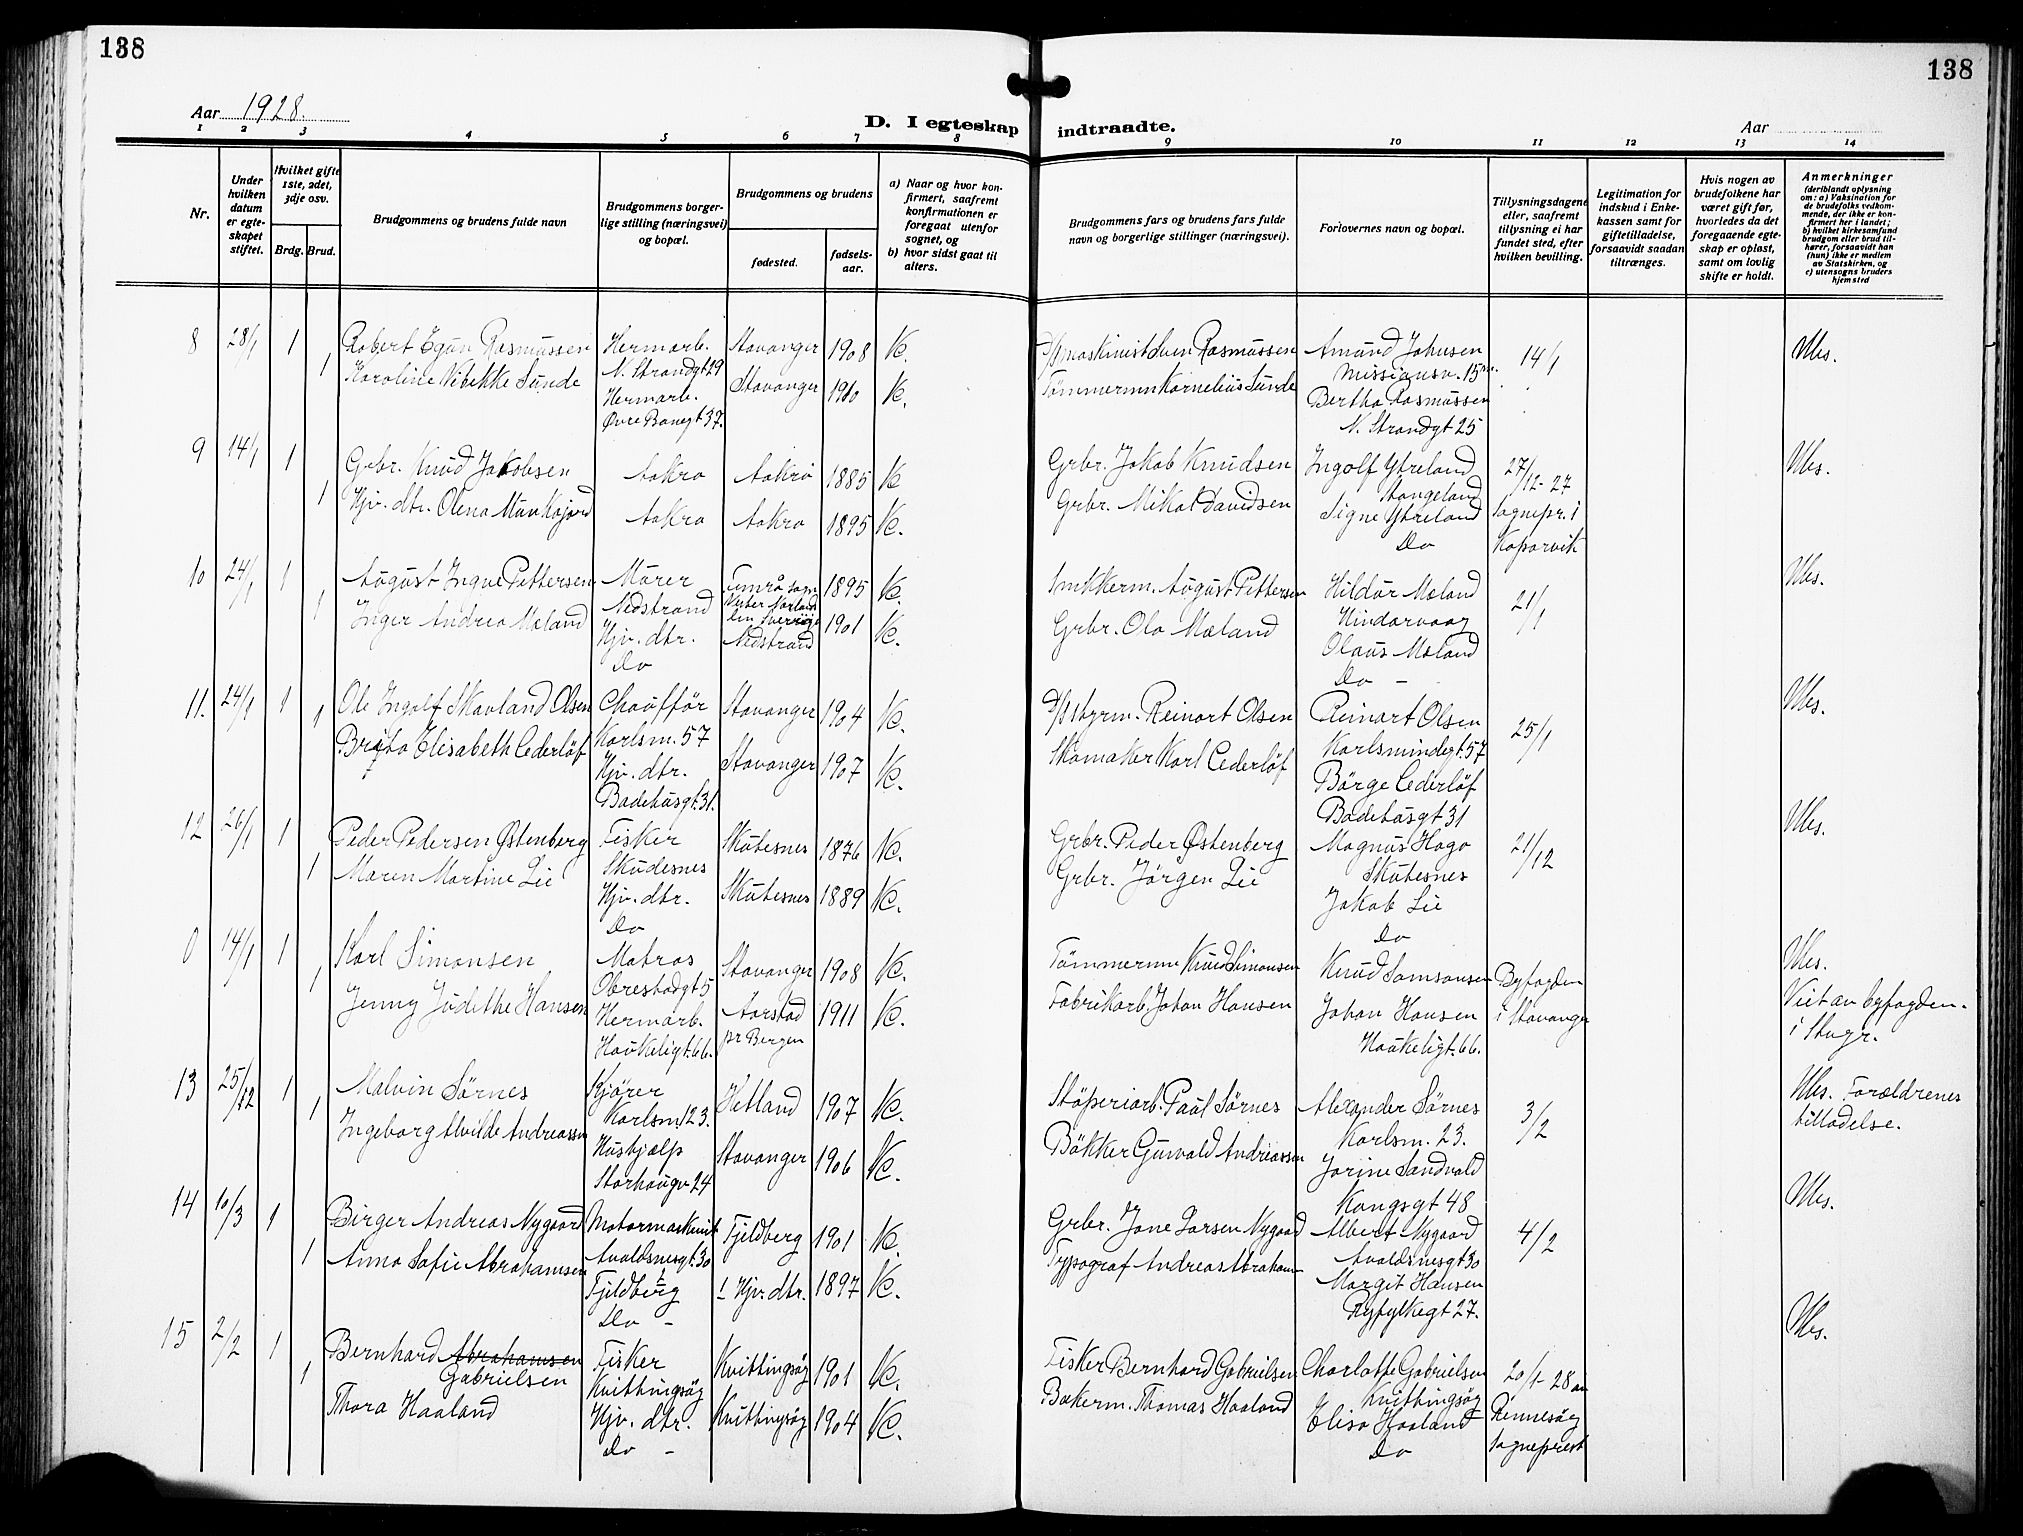 138
138
Aar 1928.
D. I egteskap indtraadte.
Aar
1 2 3 4 5 6 7 8 9 10 11 12 13 14
Nr.
Under hvilken datum er egteskapet stiftet.
Hvilket gifte 1ste, 2det, 3dje osv.
Brdg. Brud.
Brudgommens og brudens fulde navn
Brudgommens borgerlige stilling (næringsvei) og bopæl.
Brudgommens og brudens
fødested.
fødselsaar.
a) Naar og hvor konfirmert, saafremt konfirmationen er foregaat utenfor sognet, og
b) hvor sidst gaat til alters.
Brudgommens fars og brudens fars fulde navn og borgerlige stillinger (næringsvei).
Forlovernes navn og bopæl.
Tillysningsdagene eller, saafremt tillysning ei har fundet sted, efter hvilken bevilling.
Legitimation for indskud i Enkekassen samt for giftetilladelse, forsaavidt saadan tiltrænges.
Hvis nogen av brudefolkene har været gift før, hvorledes da det foregaaende egteskap er opløst, samt om lovlig skifte er holdt.
Anmerkninger
(deriblandt oplysning om: a) Vaksination for de brudefolks vedkommende, der ikke er konfirmert her i landet; b) hvilket kirkesamfund brudgom eller brud tilhører, forsaavidt han (hun) ikke er medlem av Statskirken, og c) utensogns bruders hjemsted
8 28/1 1 Robert Egun Rasmussen Hermarb. Stavanger 1908 K. D/S maskinist Sven Rasmussen Amund Johnsen 14/1 Ubs.
1 Karoline Vibekke Sunde N. Strandgt 29 Stavanger 1910 K. Tømmermn Kornelius Sunde Missionsv. 15
Hermarb. Bertha Rasmussen
Øvre Banegt 37. N. Strandgt 25
9 14/1 1 Grbr. Knud Jakobsen Aakra Aakra 1885 K Grbr. Jakob Knudsen Ingolf Ytreland 27/12-27 Ubs.
1 Hjv. dtr. Olena Munkejord Aakra Aakra 1895 K. Grbr. Mikal Davidsen Stangeland Sognepr. i
Signe Ytreland Kopervik
Do
10 24/1 1 August Ingve Pettersen Mürer Timrå sogn 1895 K. Smikkerm. August Pettersen Hildur Mæland 21/1 Ubs.
1 Inger Andrea Mæland Nedstrand Vester Norland 1901 K. Grbr. Ola Mæland Hindervaag
Hjv. dtr. len Sverige Olaus Mæland
Do Nedstrand Do -
11. 24/1 1 Ole Ingolf Skavland Olsen Chaufför Stavanger 1904 K. D/S styrm. Reinart Olsen Reinart Olsen 25/1 Ubs.
1 Brita Elisabeth Cederlöf Karlsm. 57 Stavanger 1907 K. Skomaker Karl Cederlöf Karlsmindegt. 57
Hjv. dtr. Börge Cederlöf
Badehusgt. 31. Badehusgt 31
12 26/1 1 Peder Pedersen Østenberg Fisker Skutesnes 1876 K. Grbr. Peder Østenberg Magnus Hago 21/12 Ubs.
1 Maren Martine Lie Skudesnes Skutesnes 1889 K. Grbr. Jörgen Lie Skutesnes
Hjv. dtr. Jakob Lie
Do Do
0 14/1 1 Karl Simonsen Matros Stavanger 1908 K. Tömmermn Knud Simonsen Knud Samsonsen Byfogden Ubs.
1 Jenny Judithe Hansen Obrestadgt 5 Aarstad 1911 K. Fabrikarb. Johan Hansen Johan Hansen i Stavanger Viet av byfogden
Hermarb. pr Bergen Haukeligt. 66. i Stvgr.
Haukeligt. 66.
13 25/12 1 Malvin Sörnes Kjörer Hetland 1907 K. Stöperiarb. Paul Sörnes Alexander Sörnes 3/2 Ubs. Forældrenes
1 Ingeborg Alvilde Andreassen Karlsm. 23. Stavanger 1906 K. Bökker Gunvald Andreassen Karlsm. 23. tilladelse.
Hushjælp Jorine Sandvald
Storhaugv. 24 Kongsgt 48
14 10/3 1 Birger Andreas Nygaard Motormaskinist Fjeldberg 1901 K. Grbr. Jone Larsen Nygaard Albert Nygaard 4/2 Ubs.
1 Anna Sofie Abrahamsen Avaldsnesgt. 30 1 Hjv. dtr. 1897 K. Typograf Andreas Abrahamsn Avaldsnesgt 30
Fjeldberg Margit Hansen
Do - Ryfylkegt 27.
15 2/2 1 Bernhard Abrahamsen Fisker Kvittingsøy 1901 K. Fisker Bernhard Gabrielsen Charlotte Gabrielsen 20/1-28 av Ubs.
1 Gabrielsen Kvittingsøy Kvittingsøy
Thora Haaland Hjv. dtr. Kvittingsøy 1904 K. Bakerm. Thomas Haaland Elisa Haaland Rennesøy
Do - Do Sogneprest